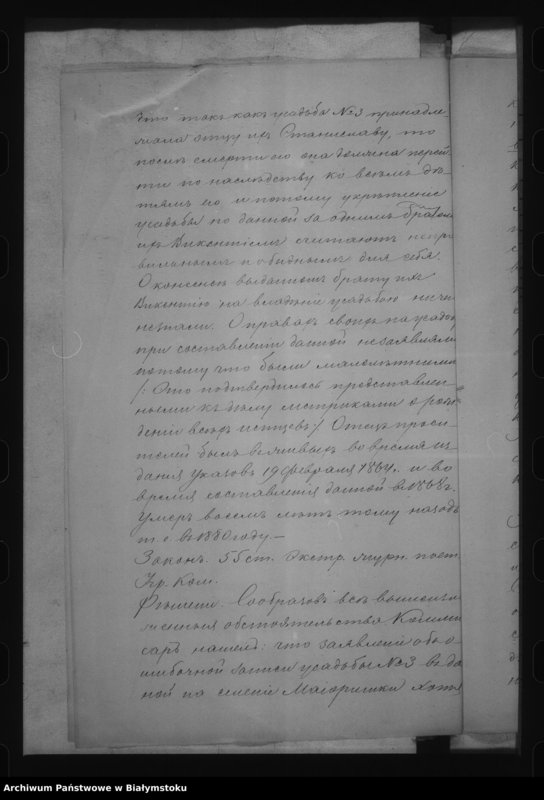 что такъ какъ усадьба №3 принадле
жала отцу ихъ Станиславу, то
послѣ смерти его она должна перей
ти по наслѣдству ко всѣмъ дѣ
тямъ его и потому укрѣпленіе
усадьбы по данной за однимъ братомъ
ихъ Викентіемъ считаютъ непра
вильнымъ и обиднымъ для себя.
О выданномъ брату ихъ
Викентію на владѣніе усадьбою ниче
незнали. О правахъ своихъ на усадьбу
при составленіи данной незаявляли
потому что были малолѣтними
/: Это подтвердилось представлен
ными къ дѣлу метриками о рож
деніи всѣхъ истцевъ/ Отецъ проси
телей былъ въ живыхъ во время из
данія Указовъ 19 Февраля 1864г. и во
время составленія данной въ 1868г.
Умеръ восемь лѣтъ тому назадъ
т. е. въ 1880 году.—
Законъ. 55 ст. экстр. журн. пост.
Кр. Ком.
Рѣшеніе. Сообразивъ всѣ вышеизло
женныя обстоятельства Коммис
саръ нашелъ: что заявленіе объ о
шибочной записи усадьбы №3 въ дан
ной на селеніе хотя
Archiwum Państwowe w Białymstoku